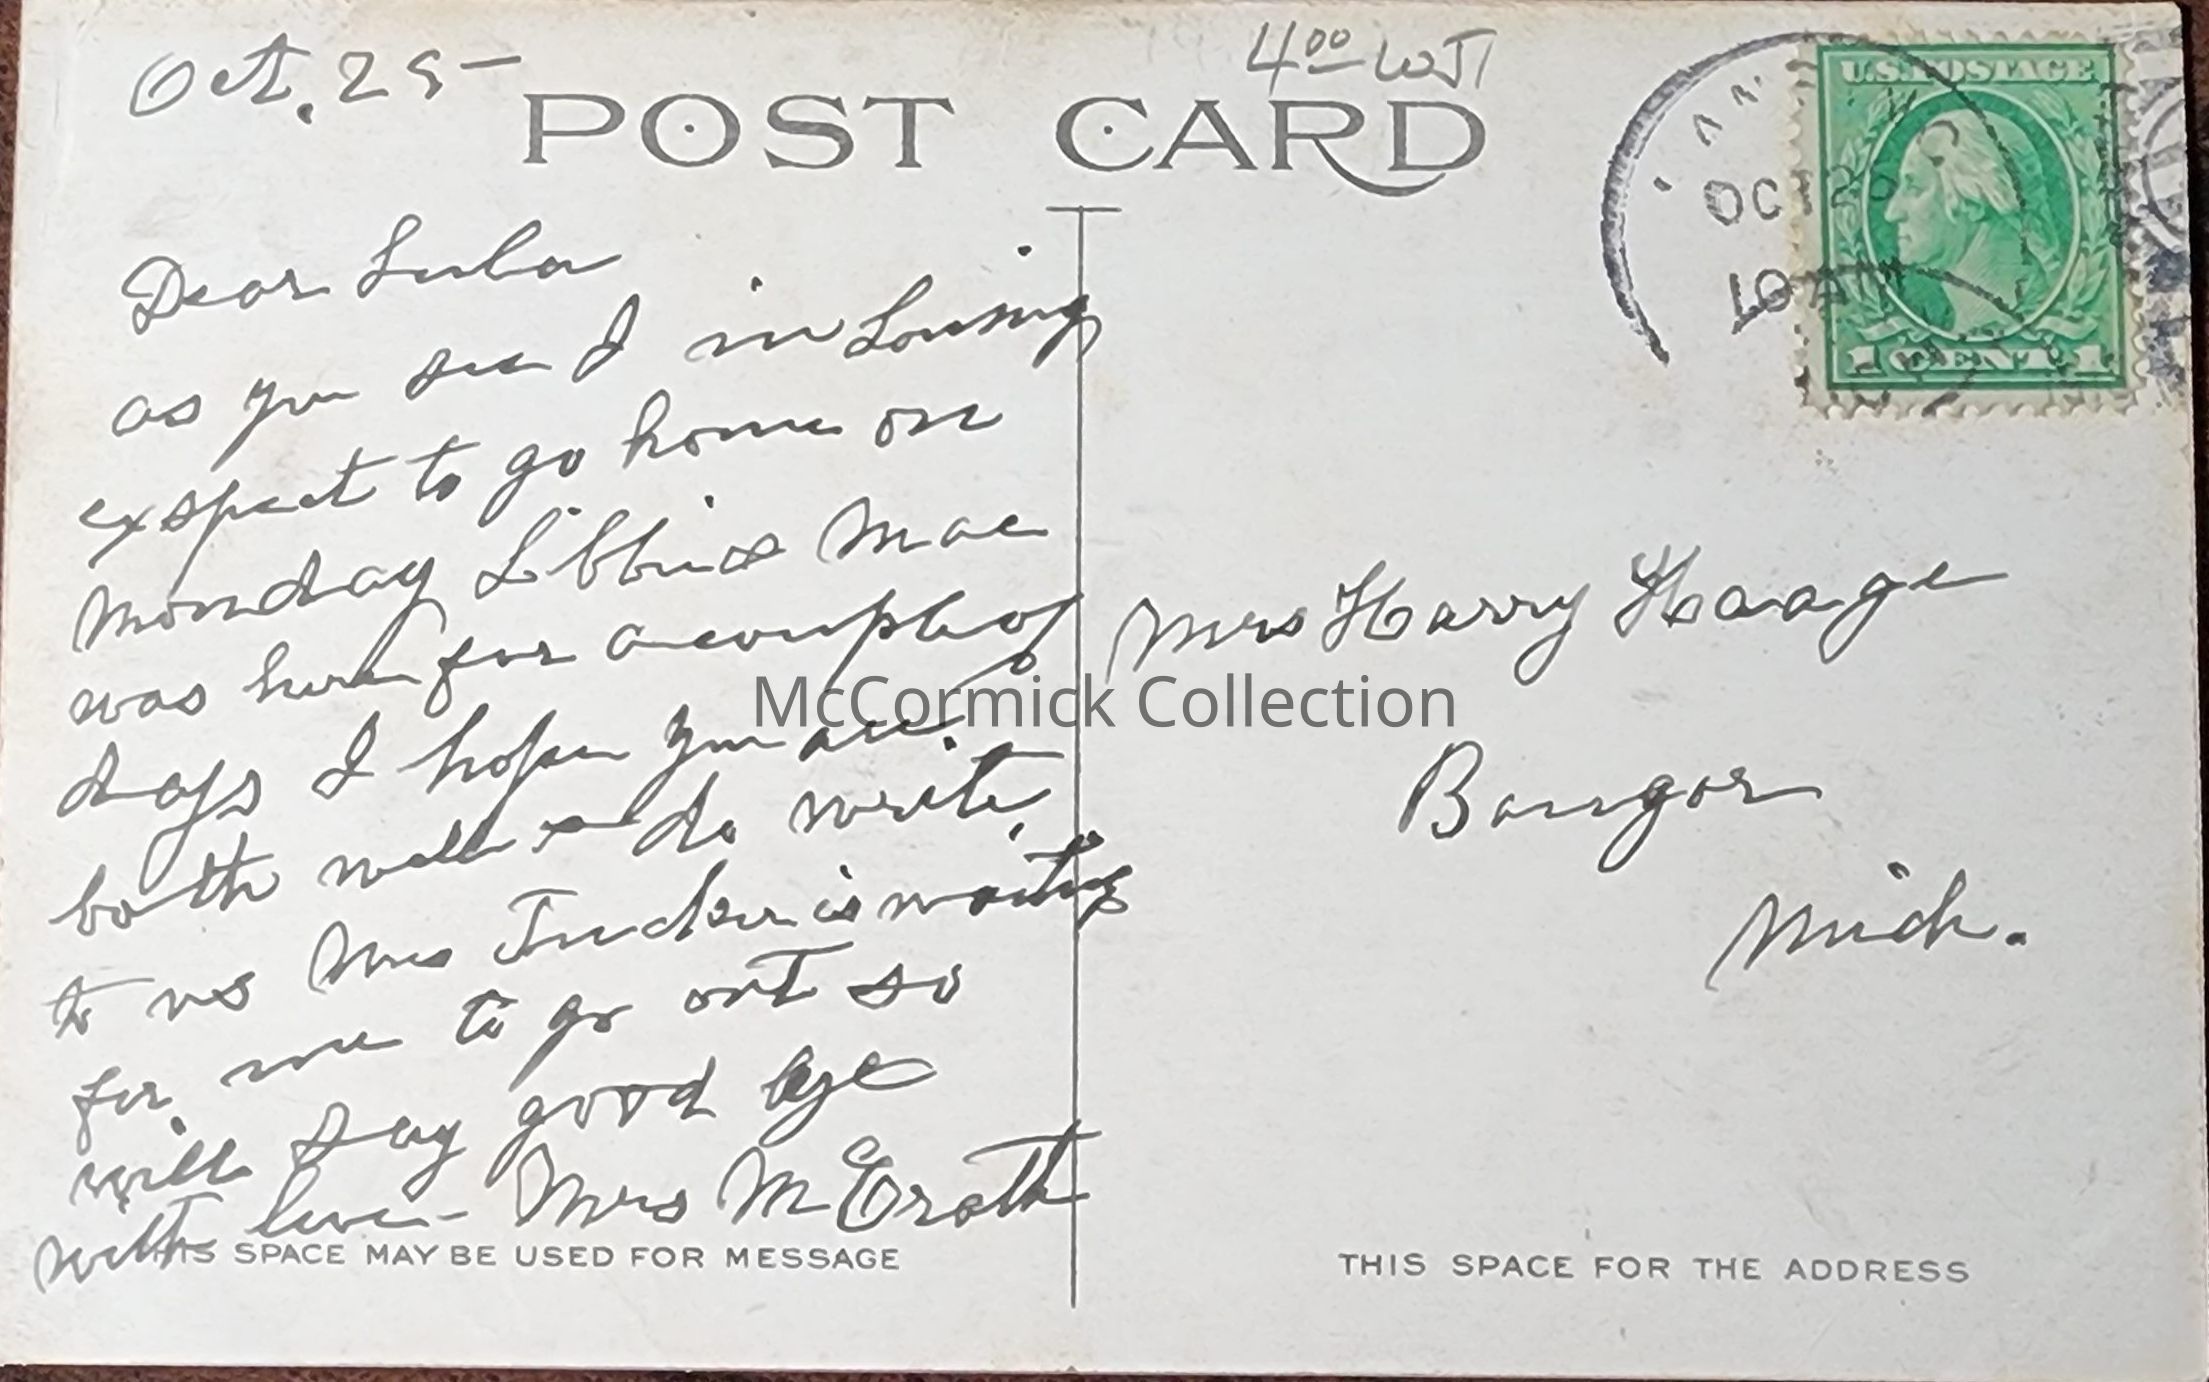 Oct. 25-
400 WJ
POST CARD
U.S. POSTAGE
OCT 25
10 AM
1 CENT 1
Dear Lula
as you see I in Lansing
exspect to go home on
Monday Libbie & Mae
was here for a couple of
days I hope you are
both well and do write
to us Mrs Tucker is waiting
for me to go out so
will say good bye
with love- Mrs McGrath
Mrs Harry Haage
Bangor
Mich.
McCormick Collection
THIS SPACE MAY BE USED FOR MESSAGE
THIS SPACE FOR THE ADDRESS